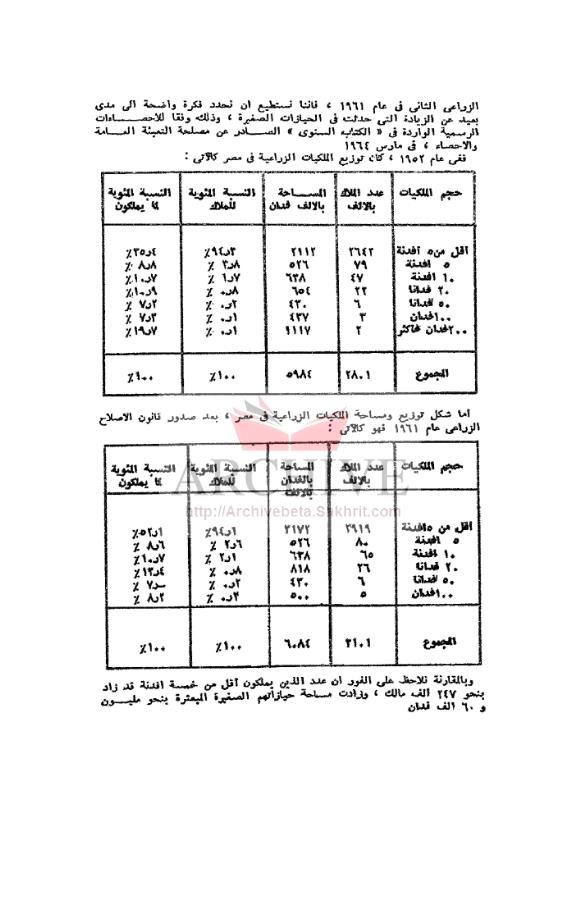 الزراعى الثانى فى عام ١٩٦١ ، فاننا نستطيع ان نحدد فكرة واضحة الى مدى
بعيد عن الزيادة التى حدثت فى الحيازات الصغيرة ، وذلك وفقا للاحصاءات
الرسمية الواردة فى « الكتاب السنوى » الصادر عن مصلحة التعبئة العامة
والاحصاء ، فى مارس ١٩٦٤
ففى عام ١٩٥٢ ، كان توزيع الملكيات الزراعية فى مصر كالآتى :
حجم الملكيات عدد الملاك بالالف المساحة بالالف فدان النسبة المئوية للملاك النسبة المئوية لما يملكون
أقل من ٥ أفدنة ٢٦٤٢ ٢١١٢ ٩٤٫٣٪ ٣٥٫٤٪
٥ افدنة ٧٩ ٥٢٦ ٢٫٨ ٪ ٨٫٨ ٪
١٠ افدنة ٤٧ ٦٣٨ ١٫٧ ٪ ١٠٫٧ ٪
٢٠ فدانا ٢٢ ٦٥٤ ٠٫٨ ٪ ١٠٫٩ ٪
٥٠ فدانا ٦ ٤٣٠ ٠٫٢ ٪ ٧٫٢ ٪
١٠٠ فدان ٣ ٤٣٧ ٠٫١ ٪ ٧٫٣ ٪
٢٠٠ فدان فأكثر ٢ ١١١٧ ٠٫١ ٪ ١٩٫٧٪
المجموع ٢٨٠١ ٥٩٨٤ ١٠٠٪ ١٠٠٪
اما شكل توزيع ومساحة الملكيات الزراعية فى مصر ، بعد صدور قانون الاصلاح
الزراعى عام ١٩٦١ فهو كالآتى :
حجم الملكيات عدد الملاك بالالف المساحة بالفدان بالالف النسبة المئوية للملاك النسبة المئوية لما يملكون
ARCHIVE
http://Archivebeta.Sakhrit.com
أقل من ٥ افدنة ٢٩١٩ ٣١٧٢ ٩٤٫١٪ ٥٢٫١٪
٥ افدنة ٨٠ ٥٢٦ ٢٫٦ ٪ ٨٫٦ ٪
١٠ افدنة ٦٥ ٦٣٨ ٢٫١ ٪ ١٠٫٧٪
٢٠ فدانا ٢٦ ٨١٨ ٠٫٨ ٪ ١٣٫٤٪
٥٠ فدانا ٦ ٤٣٠ ٠٫٢ ٪ ٧ ٪
١٠٠ فدان ٥ ٥٠٠ ٪ ٨٫٢ ٪
المجموع ٣١٠١ ٦٠٨٤ ١٠٠٪ ١٠٠٪
وبالمقارنة نلاحظ على الفور ان عدد الذين يملكون أقل من خمسة افدنة قد زاد
بنحو ٢٤٧ الف مالك ، وزادت مساحة حيازاتهم الصغيرة المبعثرة بنحو مليون
و ٦٠ الف فدان